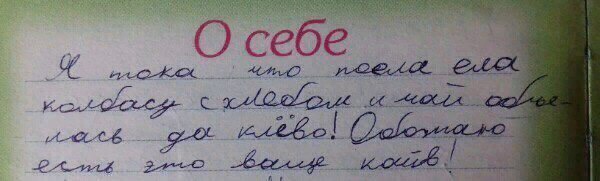 О себе
Я тока что поела ела
колбасу с хлебом и чай объе-
лась да клёво! Обожаю
есть это ваще кайв!